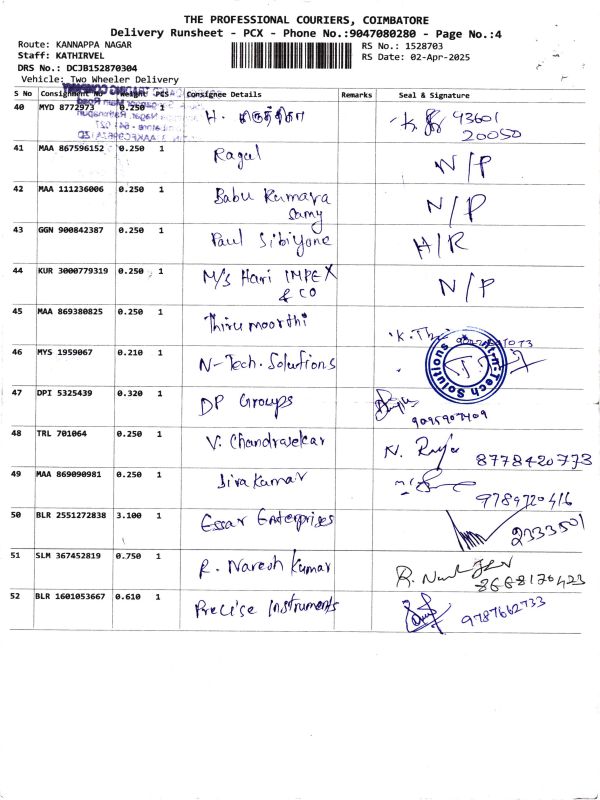 THE PROFESSIONAL COURIERS, COIMBATORE
Delivery Runsheet - PCX - Phone No.:9047080280 - Page No.:4
Route: KANNAPPA NAGAR
RS No.: 1528703
Staff: KATHIRVEL
RS Date: 02-Apr-2025
DRS No.: DCJB152870304
Vehicle: Two Wheeler Delivery
S No Consignment No Weight PCS Consignee Details Remarks Seal & Signature
40 MYD 8772973 0.250 1 H. 93601
20050
41 MAA 867596152 0.250 1 Ragul N/P
42 MAA 111236006 0.250 1 Babu Kumara N/P
Samy
43 GGN 900842387 0.250 1 Paul Sibiyone H/R
44 KUR 3000779319 0.250 1 M/s Hari IMPEX N/P
& CO
45 MAA 869380825 0.250 1 Thiru moorthi
46 MYS 1959067 0.210 1 N-Tech. Solutions
47 DPI 5325439 0.320 1 DP Groups
9095907409
48 TRL 701064 0.250 1 V. Chandrasekar N. Raja 8778420773
49 MAA 869090981 0.250 1 Siva Kumar 9789720416
50 BLR 2551272838 3.100 1 Essar Enterprises 2333501
51 SLM 367452819 0.750 1 R. Naresh Kumar
8668170423
52 BLR 1601053667 0.610 1 Precise Instruments 9787662733